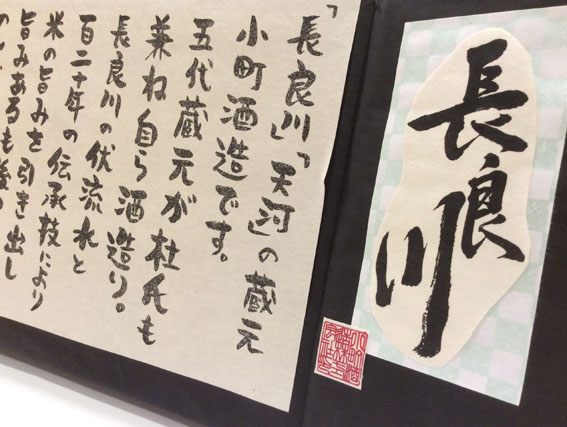 長良川
「長良川」「天河」の蔵元
小町酒造です。
五代蔵元が杜氏も
兼ね自ら酒造り。
長良川の伏流水と
百二十年の伝承技により
米の旨みを引き出し